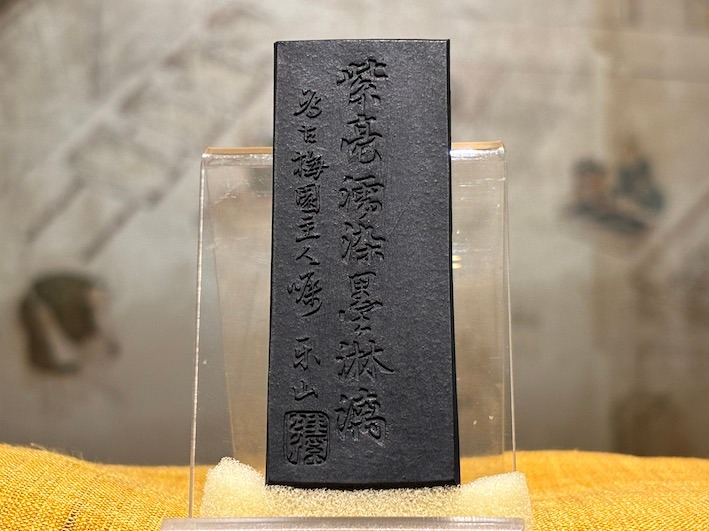 紫毫濡染墨淋漓
为古梅園主人嘱 乐山